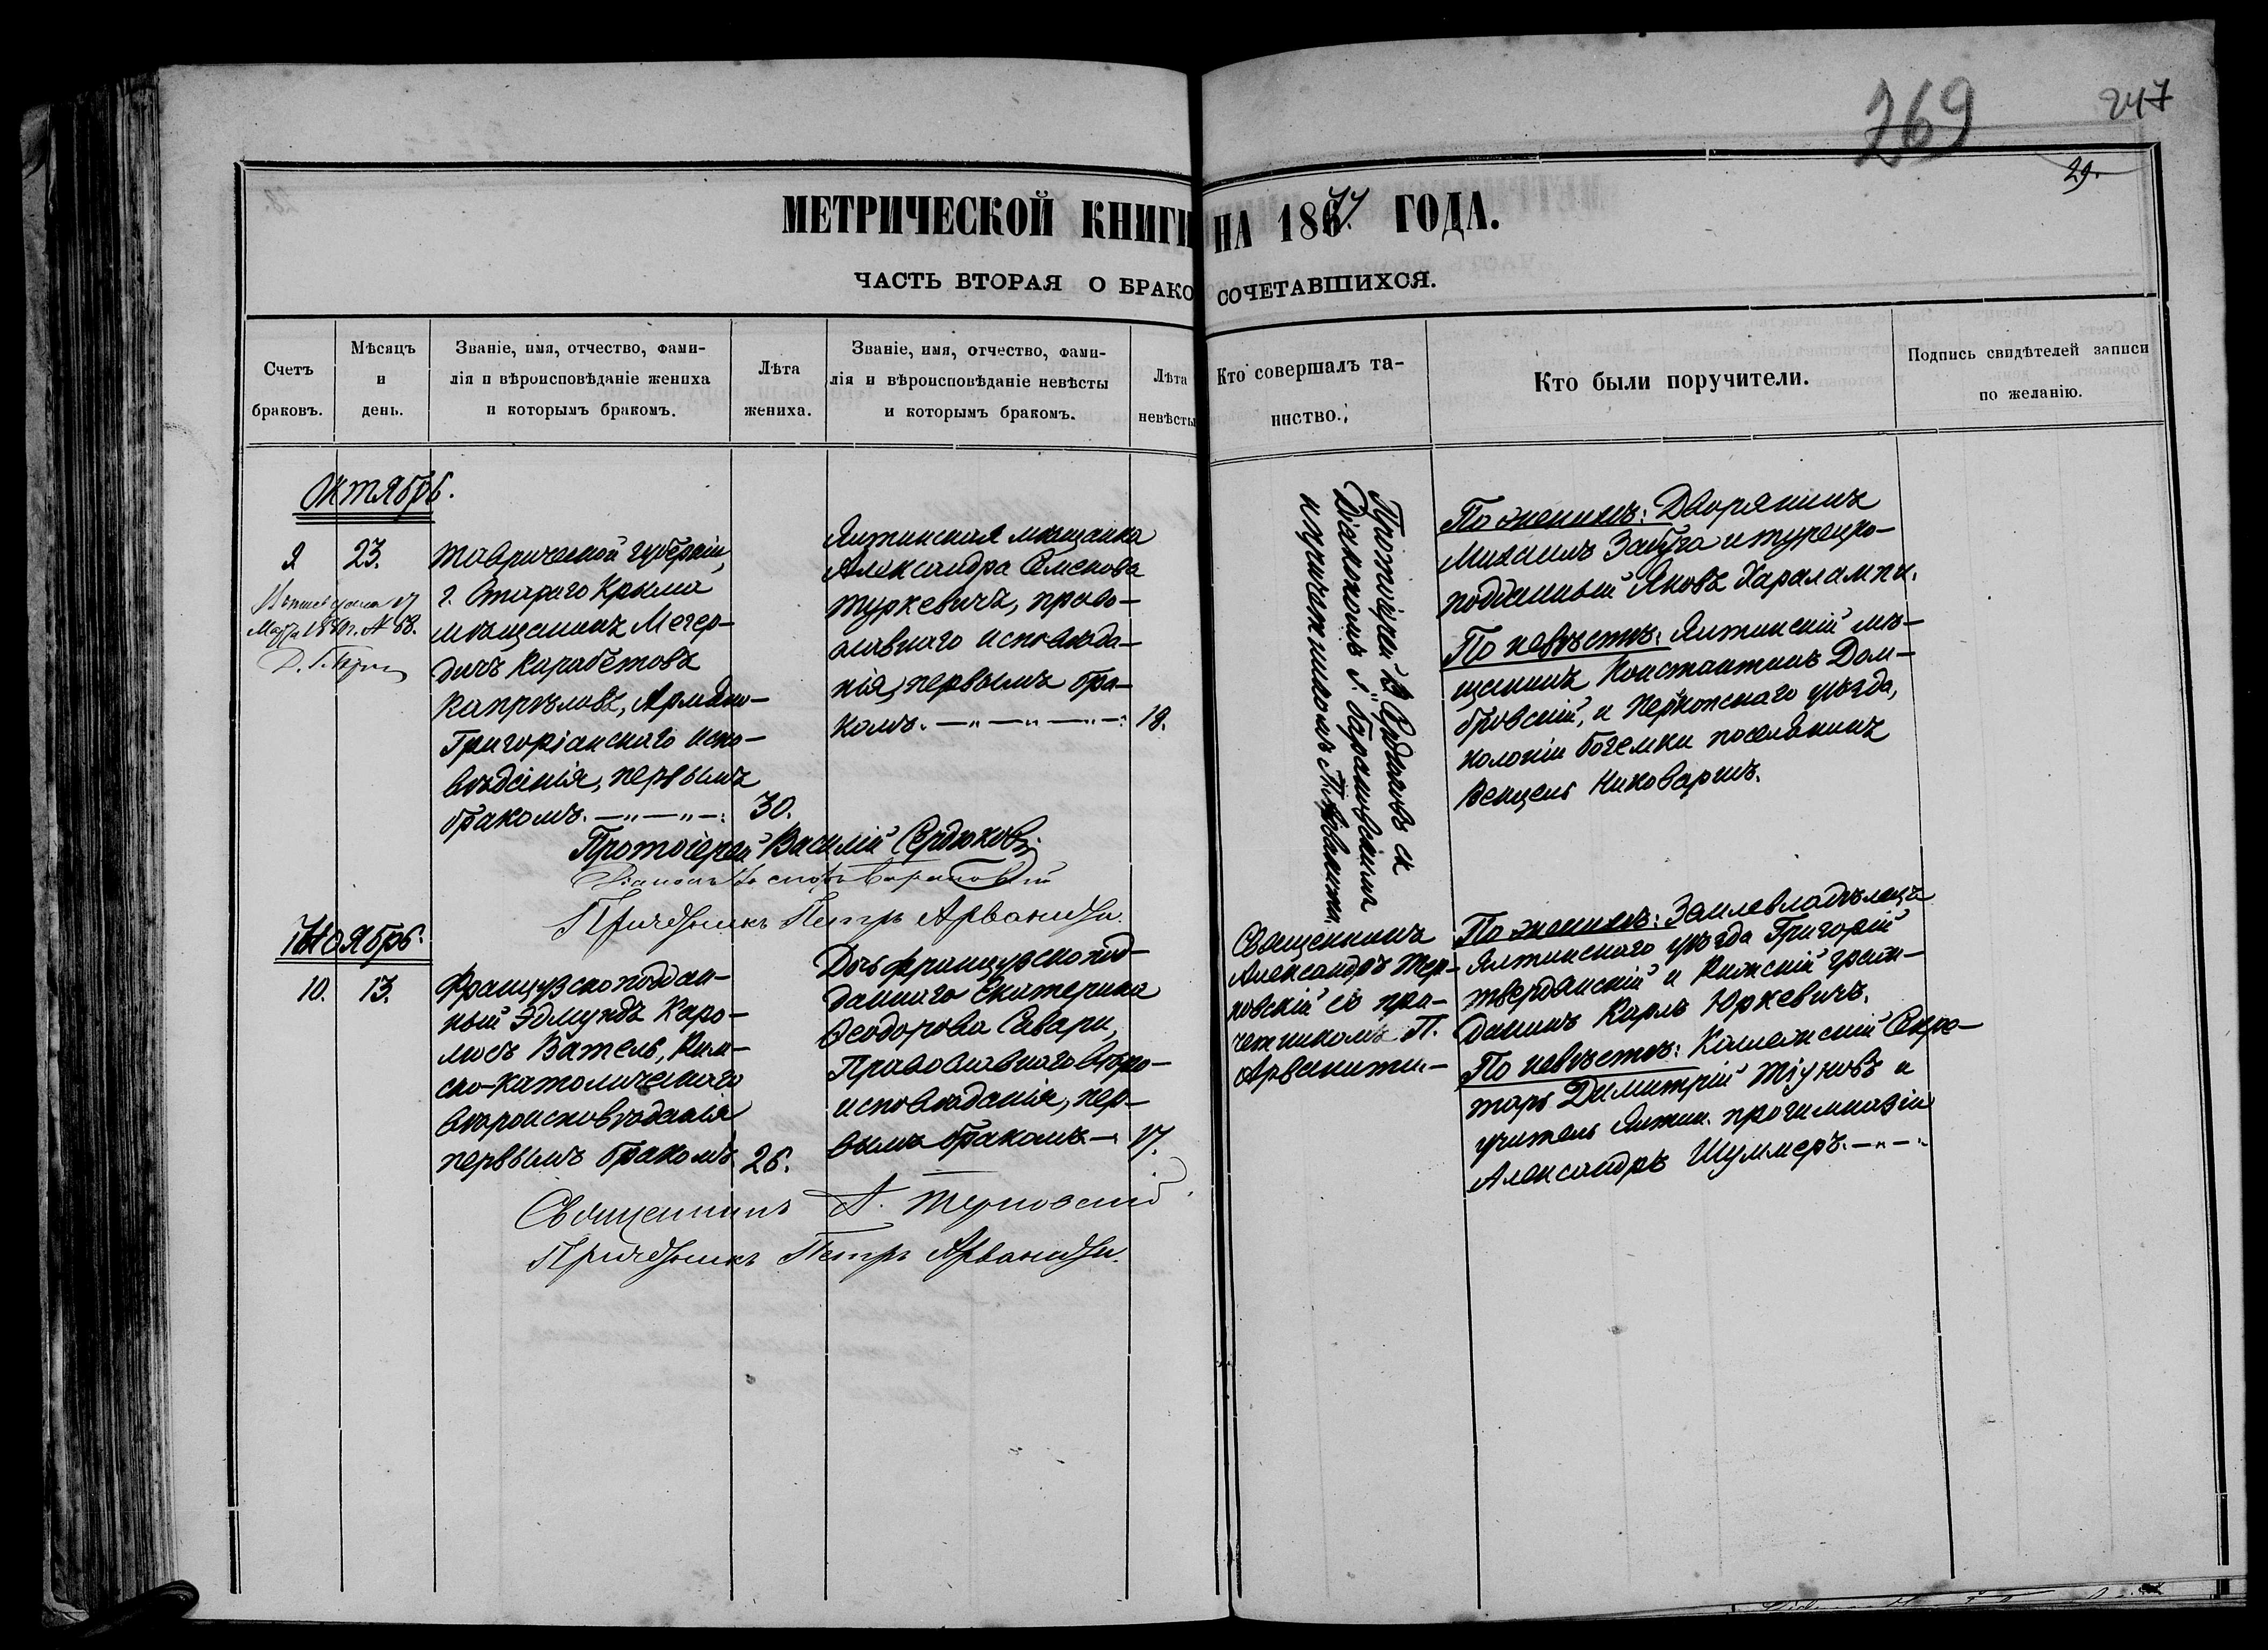 269
247
29.
МЕТРИЧЕСКОЙ КНИГИ НА 1877 ГОДА.
ЧАСТЬ ВТОРАЯ О БРАКОСОЧЕТАВШИХСЯ.
Счетъ
браковъ.
Мѣсяцъ
и
день.
Званіе, имя, отчество, фами-
лія и вѣроисповѣданіе жениха
и которымъ бракомъ.
Лѣта
жениха.
Званіе, имя, отчество, фами-
лія и вѣроисповѣданіе невѣсты
и которымъ бракомъ.
Лѣта
невѣсты
Кто совершалъ та-
инство.
Кто были поручители.
Подпись свидѣтелей записи
по желанію.
Октябрь.
23.
Марта 1880 г. № 68.
Таврической губерніи,
г. Стараго Крыма
мѣщанинъ Мегер-
дичъ Карабетовъ
Капрѣловъ, Армяно-
Григоріанскаго испо-
вѣданія, первымъ
бракомъ. —„—„—:
30.
Ялтинская мѣщанка
Александра Семенова
Туркевичъ, право-
славнаго исповѣда-
нія, первымъ бра-
комъ. —„—„—„—:
18.
Протоіерей В. Сердюковъ съ
Діакономъ І. Барановскимъ
и причетникомъ П. Арванити.
По женихѣ: Дворянинъ
Михаилъ Забуга и турецко-
подданный Яковъ Харалампи.
По невѣстѣ: Ялтинскій мѣ-
щанинъ Константинъ Дом-
бровскій, и Перекопскаго уѣзда,
колоніи Богемки поселянинъ
Венцель Ниховаринъ.
Протоіерей Василій Сердюковъ
Діаконъ Барановскій
Причетникъ Петръ Арваниди.
Ноябрь.
10.
13.
Французскоподдан-
ный Эдмундъ Каро-
люсъ Ватель, Рим-
ско-католическаго
вѣроисповѣданія
первымъ бракомъ
26.
Дочь французскопод-
даннаго Екатерина
Ѳеодорова Савари,
Православнаго вѣро-
исповѣданія, пер-
вымъ бракомъ.—:
17.
Священникъ
Александръ Тер-
новскій съ при-
четникомъ П.
Арванити.—
По женихѣ: Землевладѣлецъ
Ялтинскаго уѣзда Григорій
Твердянскій и Рижскій граж-
данинъ Карлъ Юркевичъ.
По невѣстѣ: Коллежскій Секре-
тарь Димитрій Тіуновъ и
учитель Ялтин. прогимназіи
Александръ Шуммеръ.—„—„
Священникъ А. Терновскій
Причетникъ Петръ Арваниди.